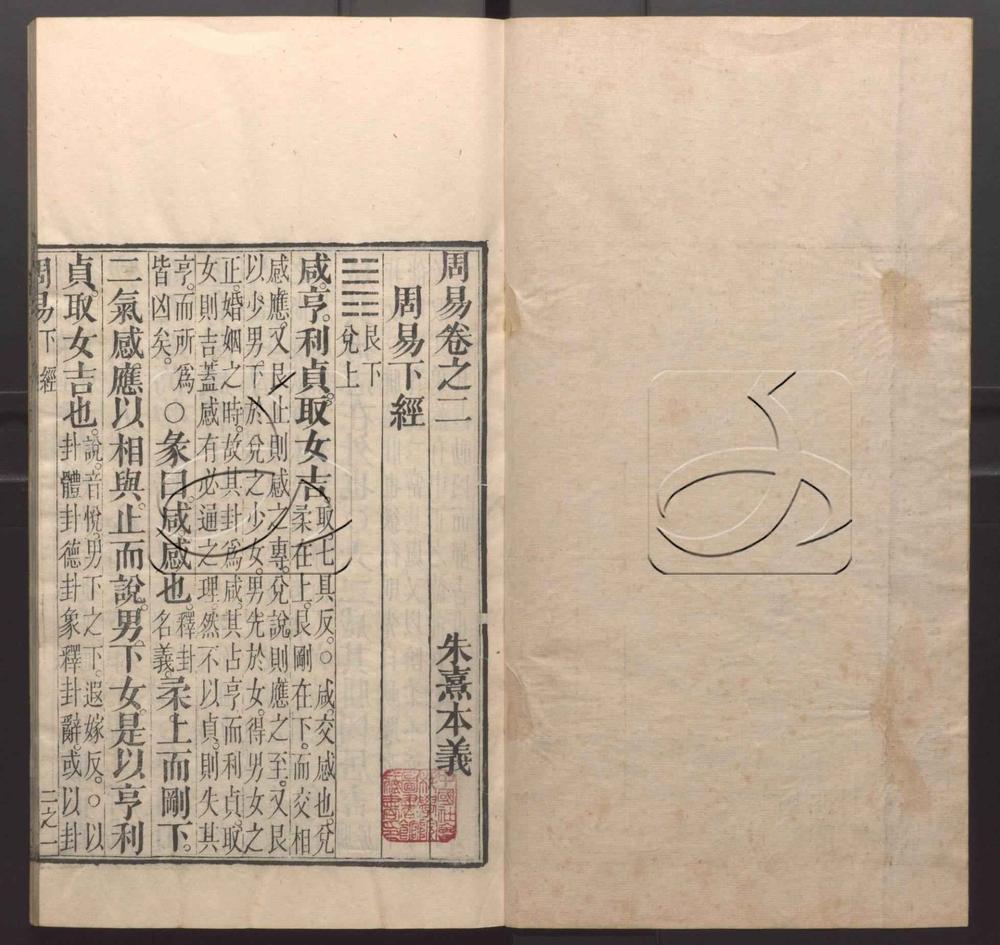 周易卷之二　朱熹本義
周易下經
䷞艮下
兌上
咸亨利貞取女吉取七具反○咸交感也兌
柔在上艮剛在下而交相
感應又艮止則感之專兌說則應之至又艮
以少男下於兌之少女男先於女得男女之
正婚姻之時故其卦爲咸其占亨而利貞取
女則吉蓋感有必通之理然不以貞則失其
亨而所爲
皆凶矣○彖曰咸感也釋卦
名義柔上而剛下
二氣感應以相與止而說男下女是以亨利
貞取女吉也說音悅男下之下遐嫁反○以
卦體卦德卦象釋卦辭或以卦
周易下經　二之一